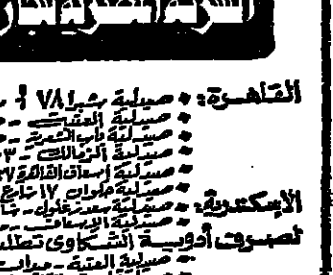 الشركة المصرية لتجار
القاهرة: • صيدلية شبرا ٧٨ أ
• صيدلية العتبة -
• صيدلية باب الشعرية -
• صيدلية الزمالك - ٣
• صيدلية إسعاف القاهرة ٣٧
• صيدلية حلوان ١٧ شارع
الأسكندرية: • صيدلية سعد زغلول -
• صيدلية الإسعاف -
تصرف أدوية الشكاوى تطلب
• صيدلية العتبة -